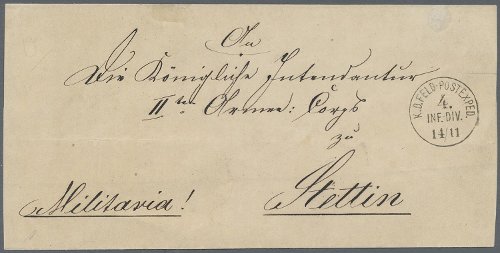 An
Die Königliche Intendantur
IIten Armee: Corps
zu
Stettin
Militaria!
K.D.FELD-POSTEXPED.
4.
INF.DIV.
14/11